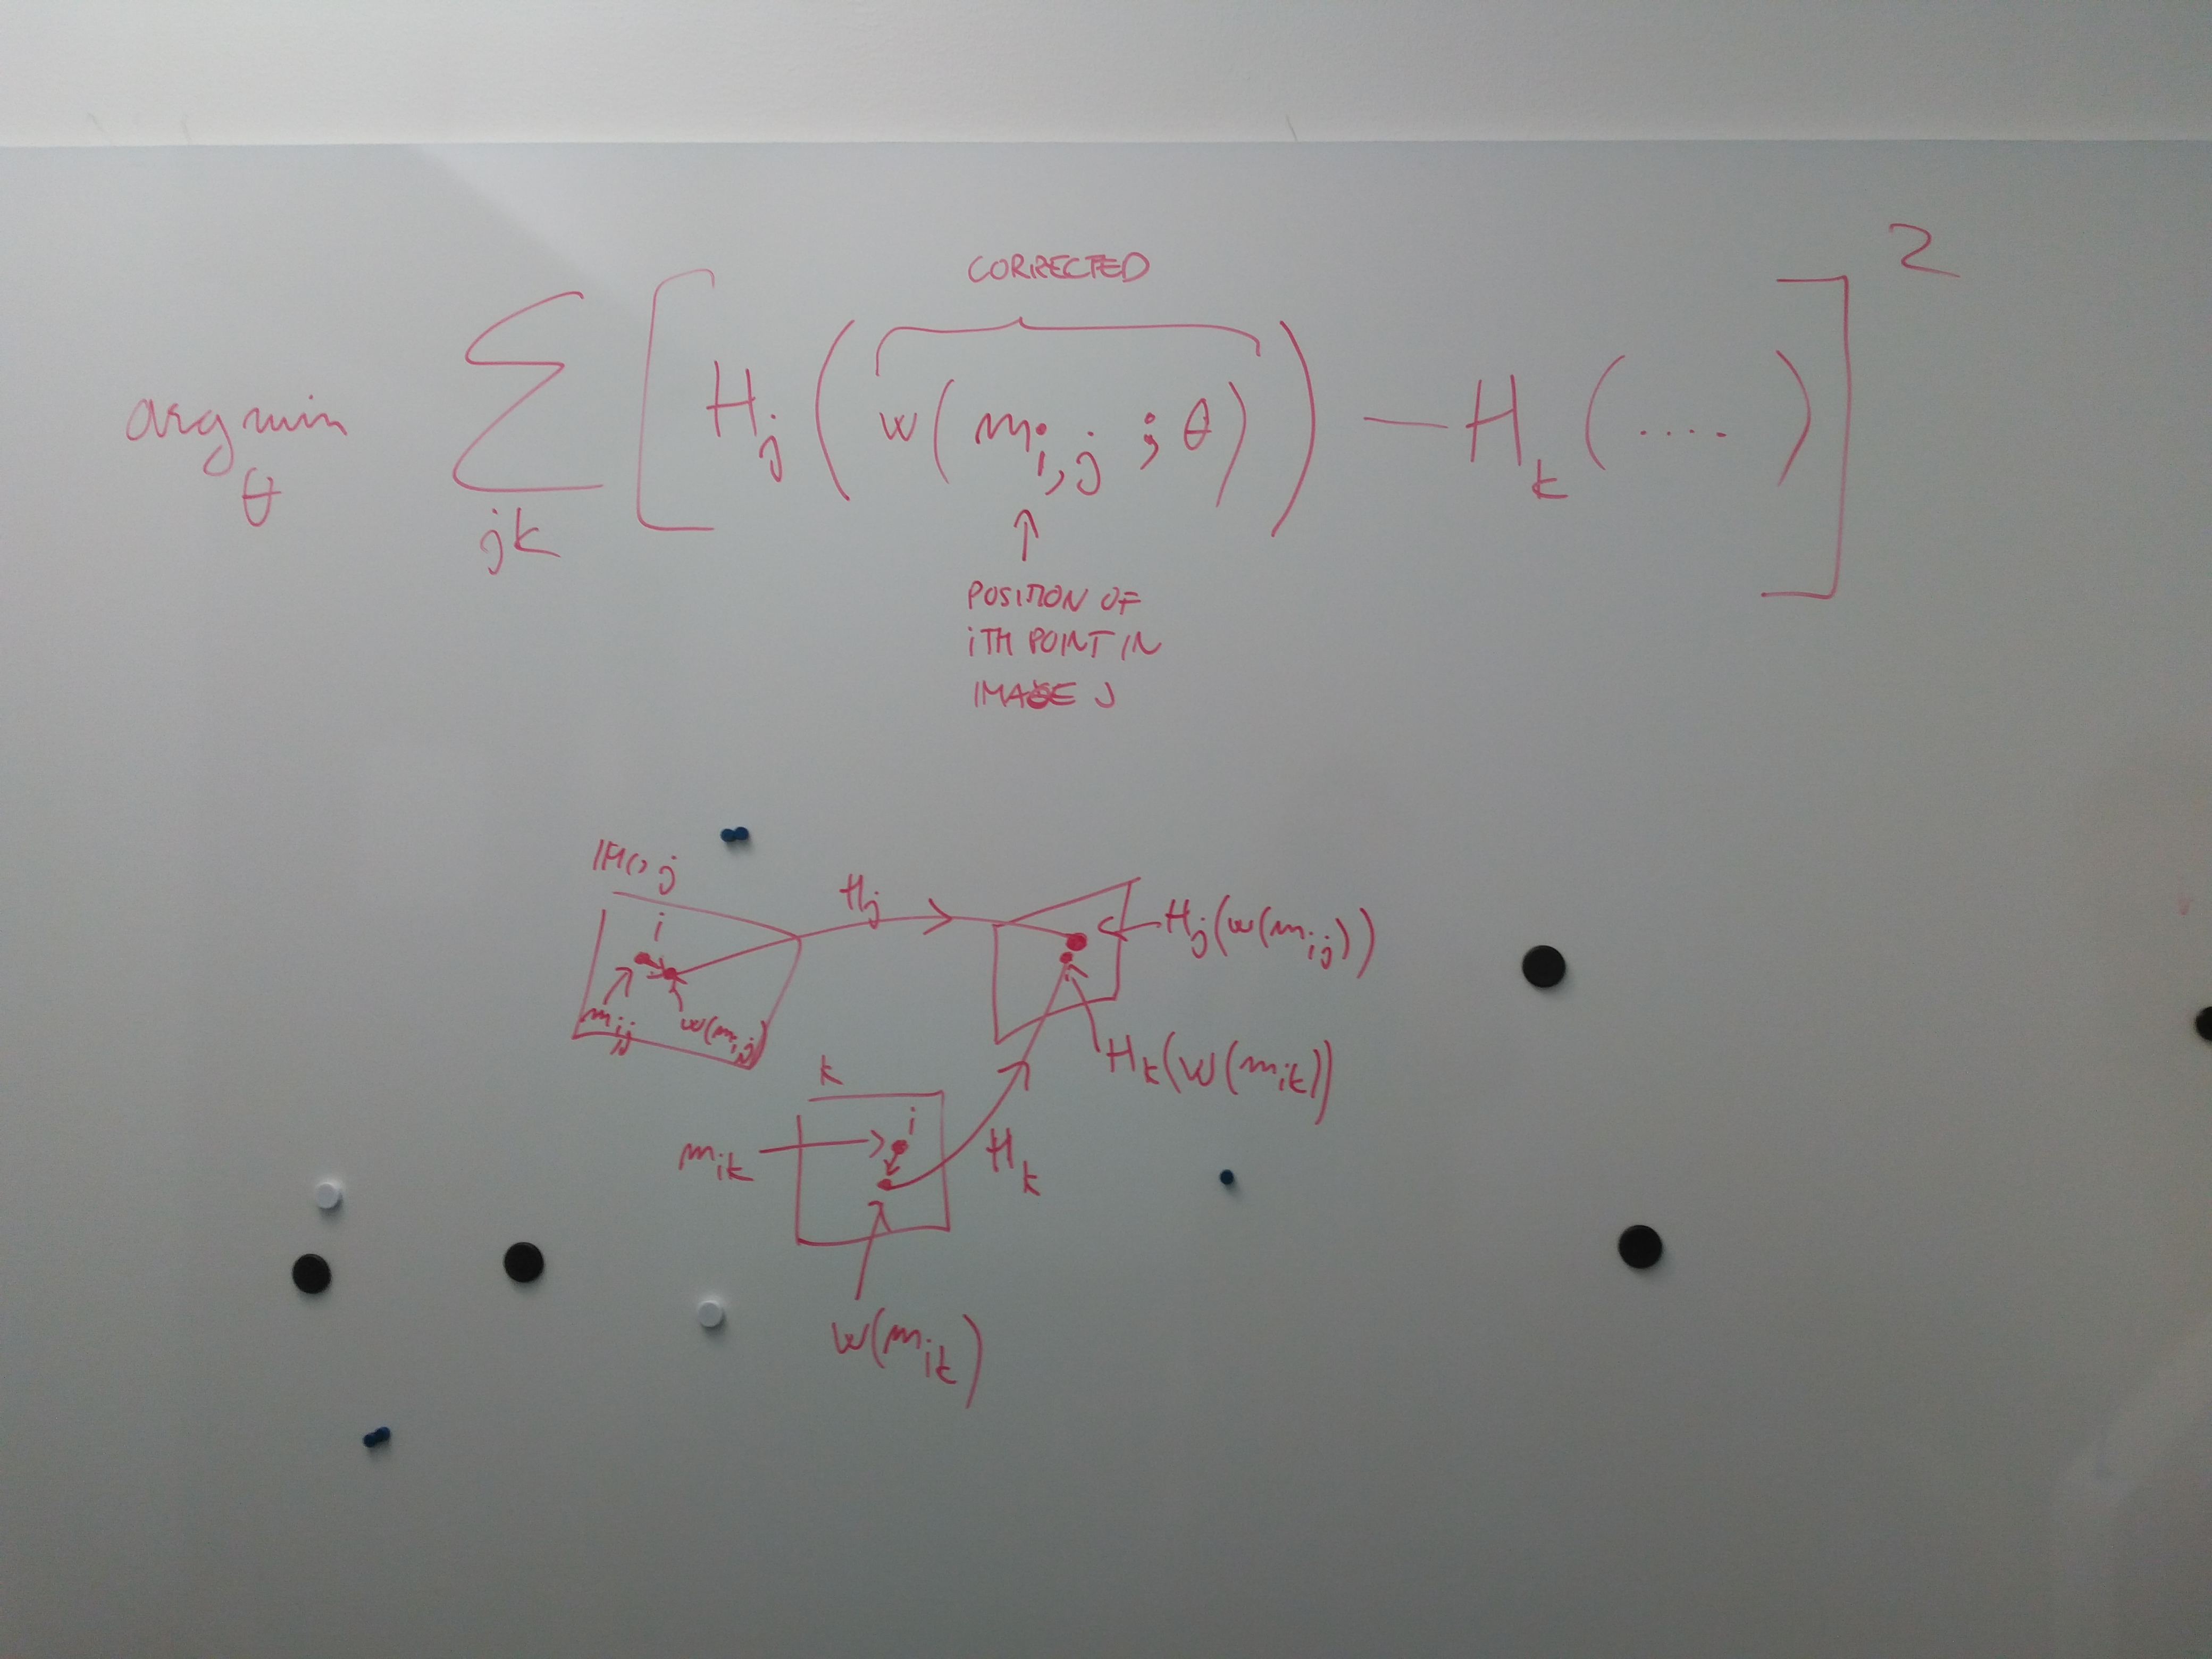 CORRECTED
arg min θ ∑ jk [ H j ( w ( m i,j ; θ ) ) − H k ( .... ) ] 2
↑
POSITION OF
iTH POINT IN
IMAGE J
j
H j
i
H j (w(m ij))
m ij
w(m ij)
H k (w(m ik))
k
i
m ik
H k
w(m ik)